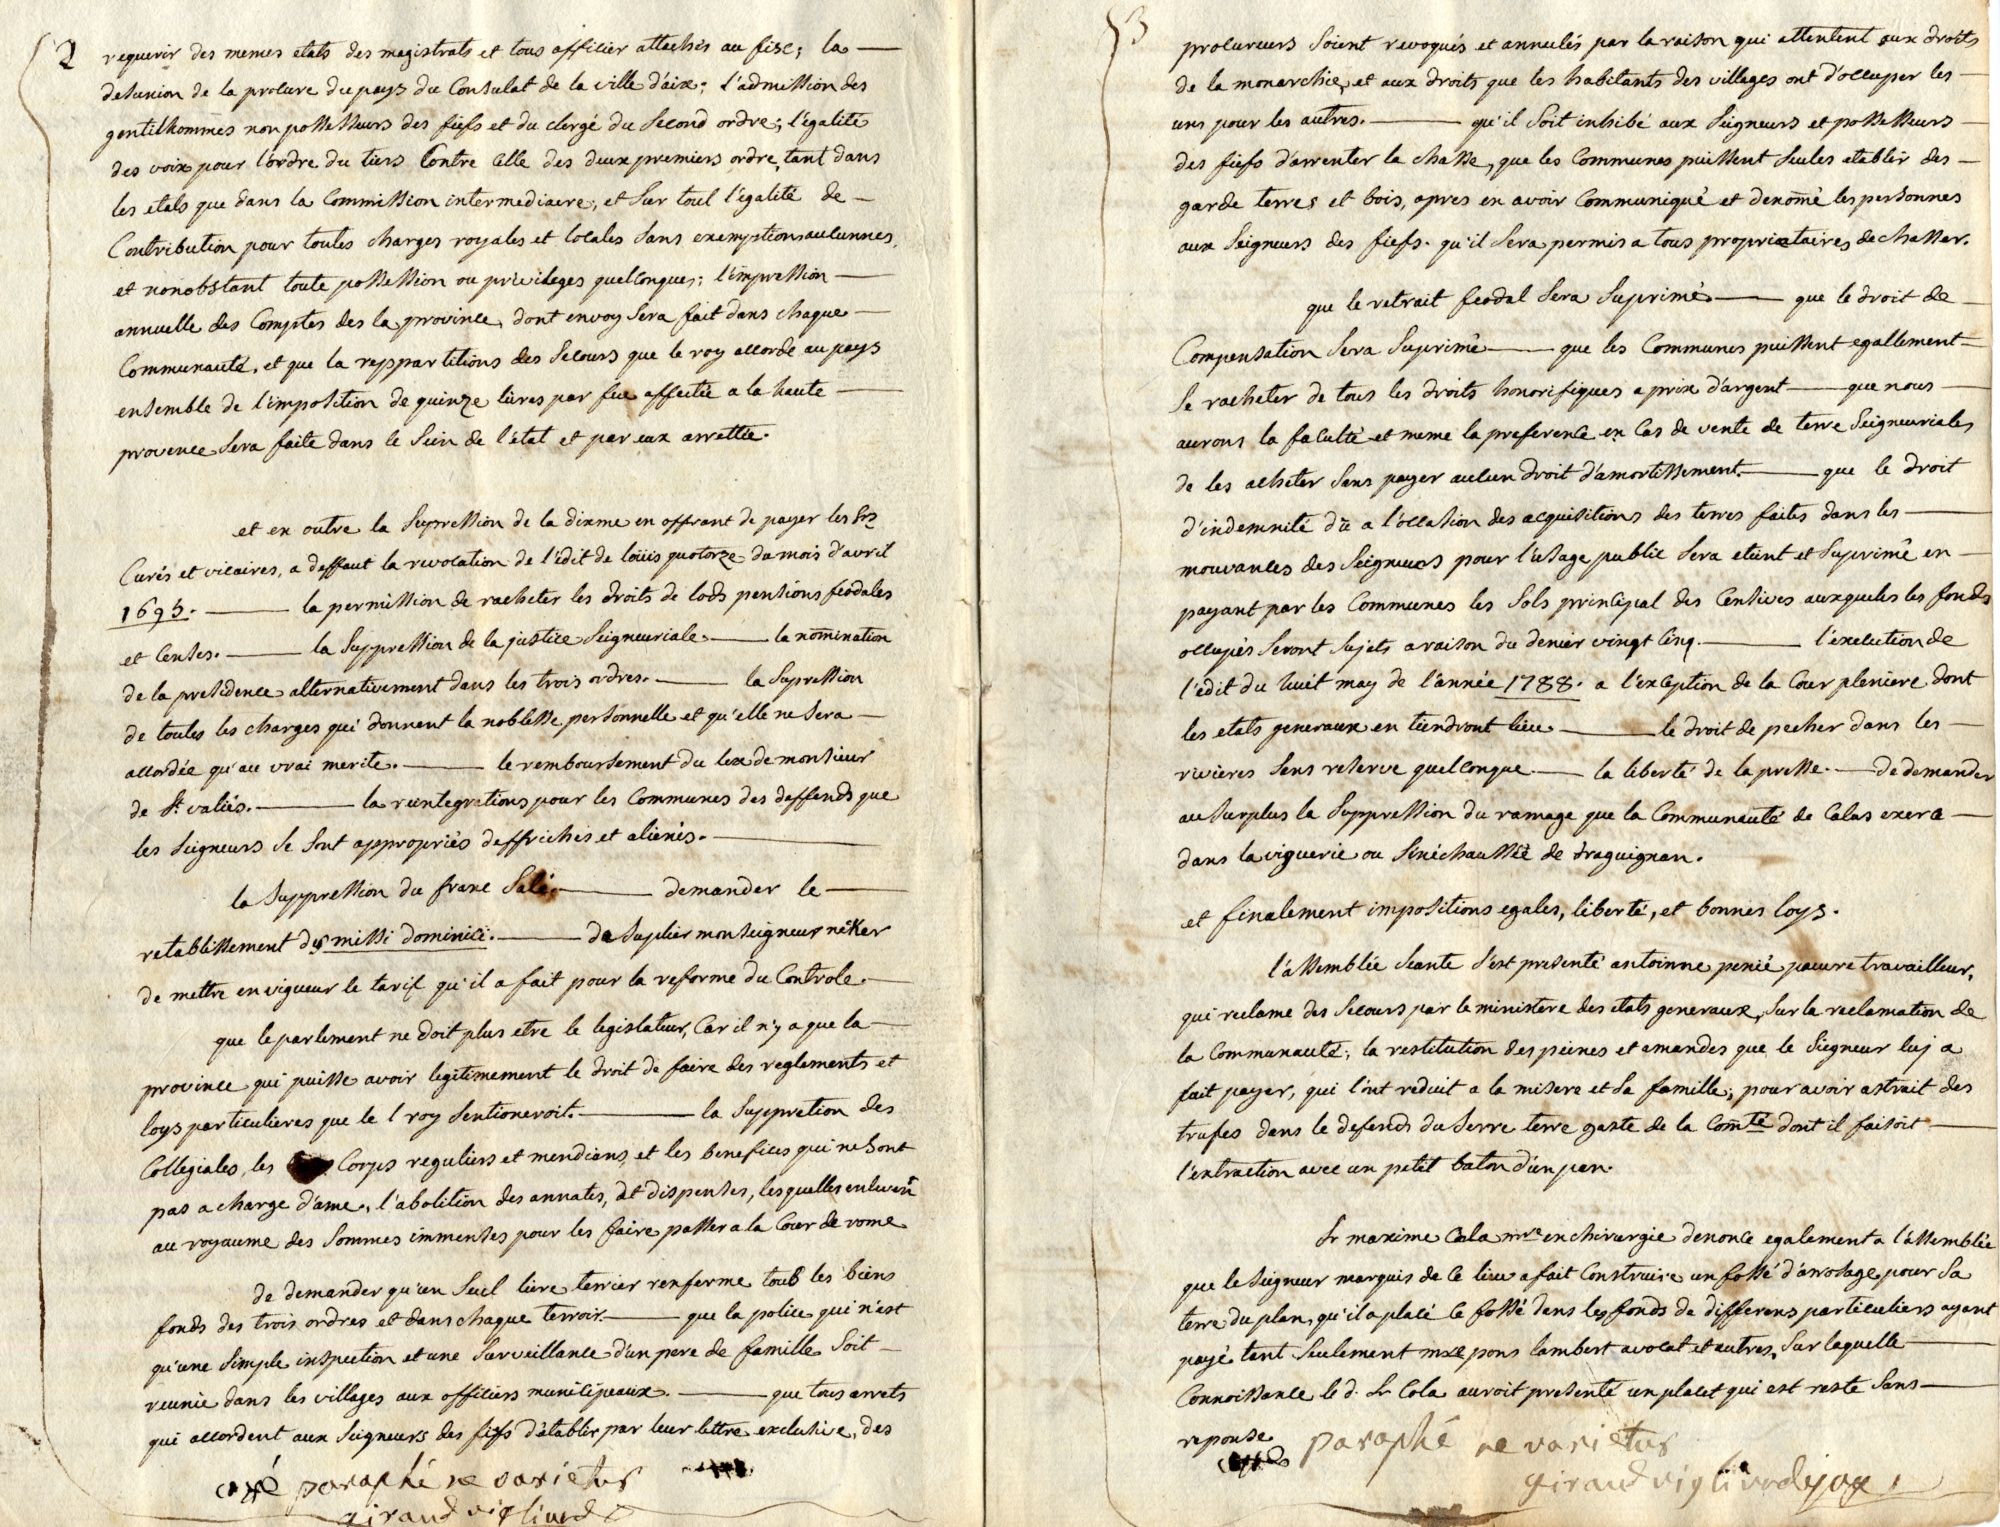 2
requerir des memes etats des magistrats et tous officier attachés au fisc; la
desunion de la procure du pays du Consulat de la ville d'aix; l'admission des
gentilhommes non possesseurs des fiefs et du clergé du second ordre; l'égalité
des voix pour l'ordre du tiers Contre celle des deux premiers ordre, tant dans
les etats que dans la Commission intermediaire, et sur tout l'égalité de
Contribution pour toutes charges royales et locales sans exemptions aucunnes,
et nonobstant toute possession ou privileges quelconques; l'impression
annuelle des Comptes des la province, dont envoy sera fait dans chaque
Communauté. et que la reppartitions des secours que le roy accorde au pays
ensemble de l'imposition de quinze livres par feu affectée a la haute
provence sera faite dans le sein de l'état et par eux arrettée.
et en outre la supression de la dixme en offrant de payer les srs
Curés et vicaires, a deffaut la revocation de l'édit de loüis quatorze du mois d'avril
1693. la permission de racheter les droits de lods pensions feodales
et censes. la suppression de la justice seigneuriale. la nomination
de la presidence alternativement dans les trois ordres. la supression
de toutes les charges qui donnent la noblesse personnelle et qu'elle ne sera
accordée qu'au vrai merite. le remboursement du lex de monsieur
de St. valiés. la reintegrations pour les Communes des deffends que
les seigneurs se sont appropriés deffrichés et alienés.
la suppression du franc salé. demander le
retablissement des missi dominici. de suplier monseigneur néker
de mettre en vigueur le tarif qu'il a fait pour la reforme du Controle.
que le parlement ne doit plus etre le legislateur, Car il n'y a que la
province qui puisse avoir legitimement le droit de faire des reglements et
loys particulieres que le roy sentioneroit. la suppretion des
Collegiales, les Corps reguliers et mendians, et les benefices qui ne sont
pas a charge d'ame, l'abolition des annates, det dispenses, lesquelles enlevent
au royaume des sommes immenses pour les faire passer a la Cour de rome
de demander qu'un seul livre terrier renferme tous les biens
fonds des trois ordres et dans chaque terroir. que la police qui n'est
qu'une simple inspection et une surveillance d'un pere de famille soit
reunie dans les villages aux officiers municipeaux. que tous arrets
qui accordent aux seigneurs des fiefs d'établir par leur lettre exclusive, des
paraphé ne varietur
giraud viglivard
3
procureurs soient revoqués et annulés par la raison qui attentent aux droits
de la monarchie, et aux droits que les habitants des villages ont d'occuper les
uns pour les autres. qu'il soit inhibé aux seigneurs et possesseurs
des fiefs d'arrenter la chasse, que les Communes puissent seules etablir des
garde terres et bois, apres en avoir Communiqué et denomé les personnes
aux seigneurs des fiefs. qu'il sera permis a tous proprietaires de chasser.
que le retrait feodal sera suprimé que le droit de
Compensation sera suprimé que les Communes puissent egallement
se racheter de tous les droits honorifiques a prix d'argent que nous
aurons la faculté et meme la preference en Cas de vente de terre seigneuriales
de les acheter sans payer aucun droit d'amortissement. que le droit
d'indemnité dû a l'occasion des acquisitions des terres faites dans les
mouvances des seigneurs pour l'usage public sera eteint et suprimé en
payant par les Communes les sols principal des Censives auxqueles les fonds
occupés seront sujets a raison du denier vingt cinq. l'execution de
l'édit du huit may de l'année 1788. a l'exception de la Cour pleniere dont
les etats generaux en tiendront lieu le droit de pecher dans les
rivieres sens reserve quelconque. la liberté de la presse. de demander
au surplus la suppression du ramage que la Communauté de Calas exerce
dans la viguerie ou sénéchaussée de draguignan.
et finalement impositions egales, liberté, et bonnes loys.
l'assemblée seante s'est presenté antoinne penié pauvre travailleur,
qui reclame des secours par le ministere des etats generaux, sur la reclamation de
la Communauté; la restitution des peines et amandes que le seigneur luj a
fait payer, qui l'ont reduit a la misere et sa famille, pour avoir astrait des
trufes dans le defends du serre terre gaste de la Comté dont il faisoit
l'extraction avec un petit baton d'un pan.
Sr maxime Cola mre en chirurgie denonce egalement a l'assemblée
que le seigneur marquis de ce lieu a fait Construire un fossé d'arrosage pour sa
terre du plan, qu'il a placé ce fossé dans les fonds de differens particuliers ayant
payé tant seulement mre pons lambert avocat et autres, sur laquelle
Connoissance le d. Sr Cola auroit presenté un placet qui est resté sans
reponse
paraphé ne varietur
giraud viglivard juge